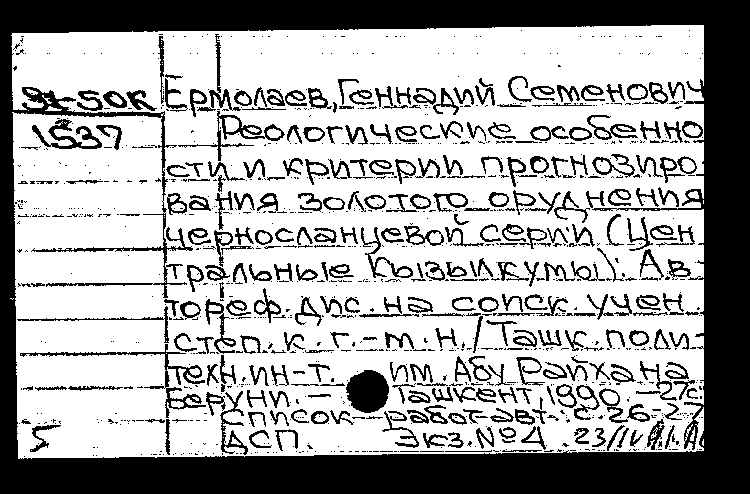 Ермолаев, Геннадий Семенович
1537 Реологические особенно
сти и критерии прогнозиро-
вания золотого оруднения
черносланцевой серии (Цен
тральные Кызылкумы): Ав-
тореф. дис. на соиск. учен.
степ. к. г.-м. н./Ташк. поли-
техн. ин-т. им. Абу Райхана
Беруни. — Ташкент, 1990. — 27с
Список работ авт.: с. 26-27
5 ДСП. Экз. №4 . 23/IV